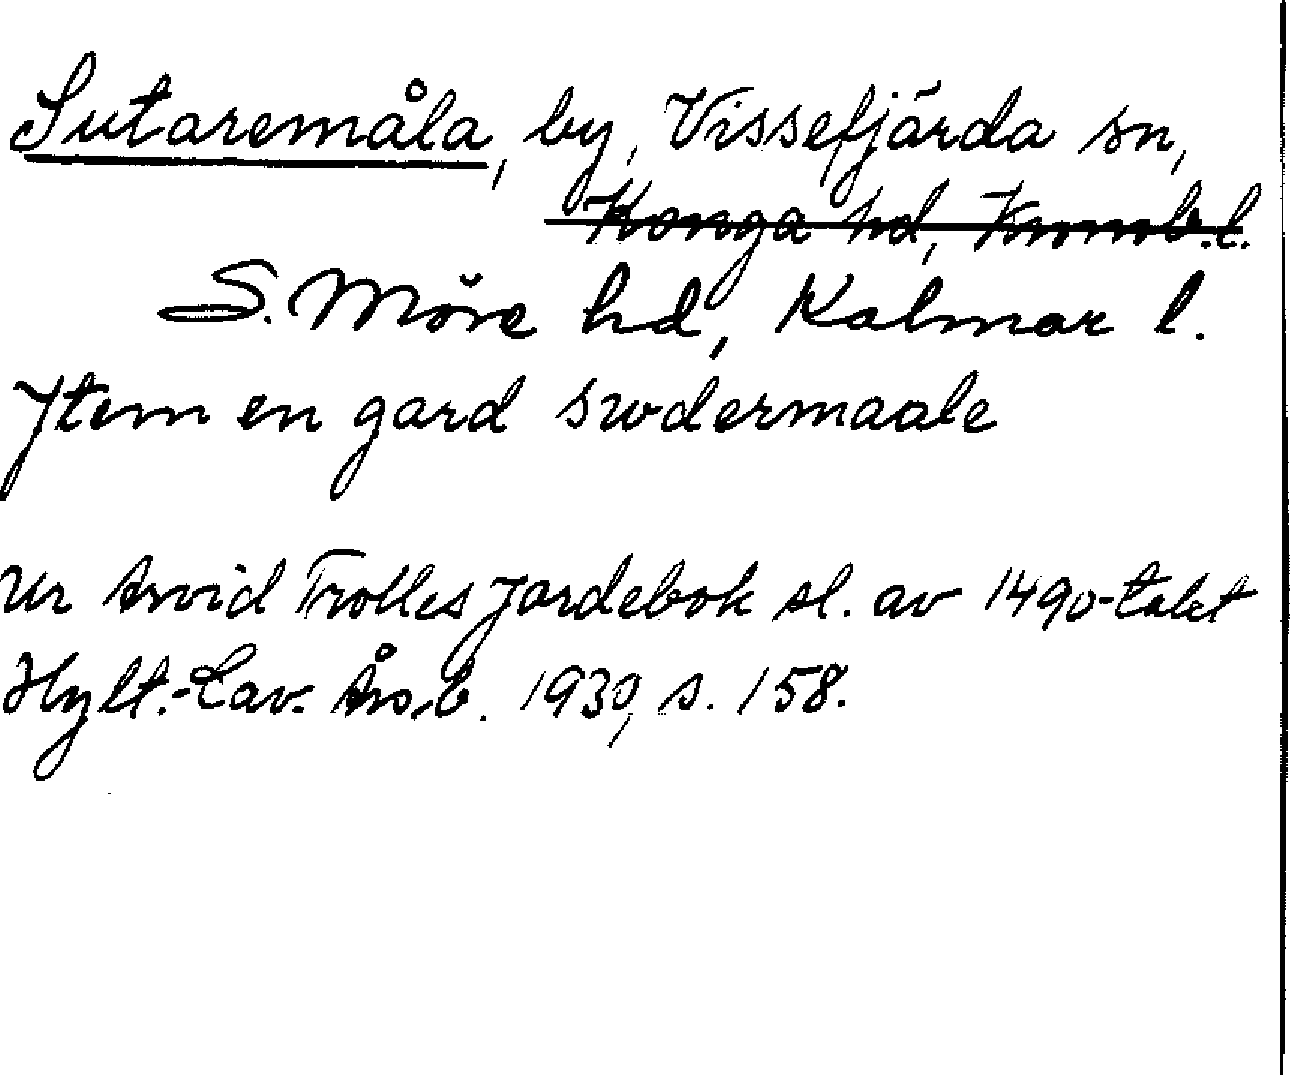 Sutaremåla, by, Vissefjärda sn,
Konga hd, Kronob.l.
S. Möre hd, Kalmar l.
Jtem en gard swdermaale
Ur Arvid Trolles jordebok sl. av 1490-talet
Hylt.-Cav. Års.b. 1939, s. 158.